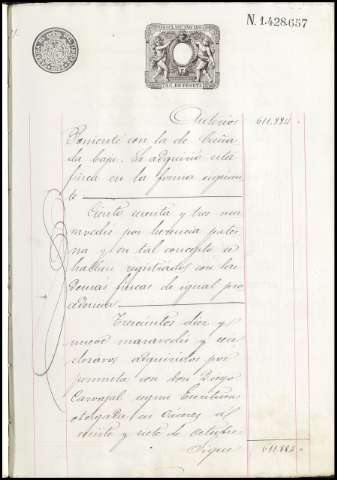 N. 1.428.657
Anterior 611.882
Poniente con la de Peña
da baja. Se adquirió esta
finca en la forma siguien
te
Ciento sesenta y tres ma
ravedis por herencia pater
na y en tal concepto se
hallan registrados con las
demas fincas de igual pro
cedencia
Trecientos diez y
nueve maravedis y
adquiridos por
permuta con don Diego
Carvajal segun Escritura
otorgada en Cáceres el
veinte y siete de
Sigue 611.882